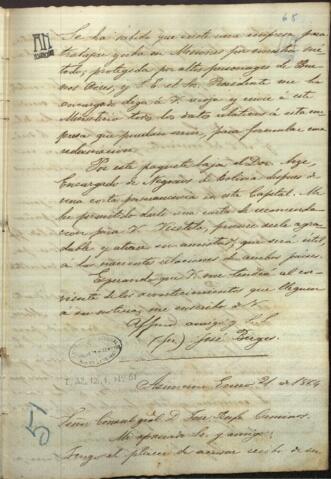 65
Se ha sabido que existe una empresa para
trabajar yerba en Misiones por nuestro me
todo, protegida por altos personages de Bue
nos Ayres, y S. E. el Sr. Presidente me ha
encargado diga à V. recoja y envie à este
Ministerio todos los datos relativos à esta em
presa que puedan servir, para formular una
reclamacion.
Por este paquete baja el Dor.
Encargado de Negocios de Bolivia despues de
una corta permanencia en esta Capital. Me
he permitido darle una carta de recomenda
cion para V. Visitelo, procure serle agra
dable y atraer su amistad, que será util
a las nacientes relaciones de ambos paises.
Esperando que V. me tendrá al cor
riente de los acontecimientos que lleguen
a su noticia, me suscribo de V.
Affmo. amigo y S. S.
(fir) José Berges.
Asuncion Enero 21 de 1864
Señor Consul gral. D. José Rufo Caminos.
Mi apreciado Sr. y amigo:
Tengo el placer de acusar recibo de su